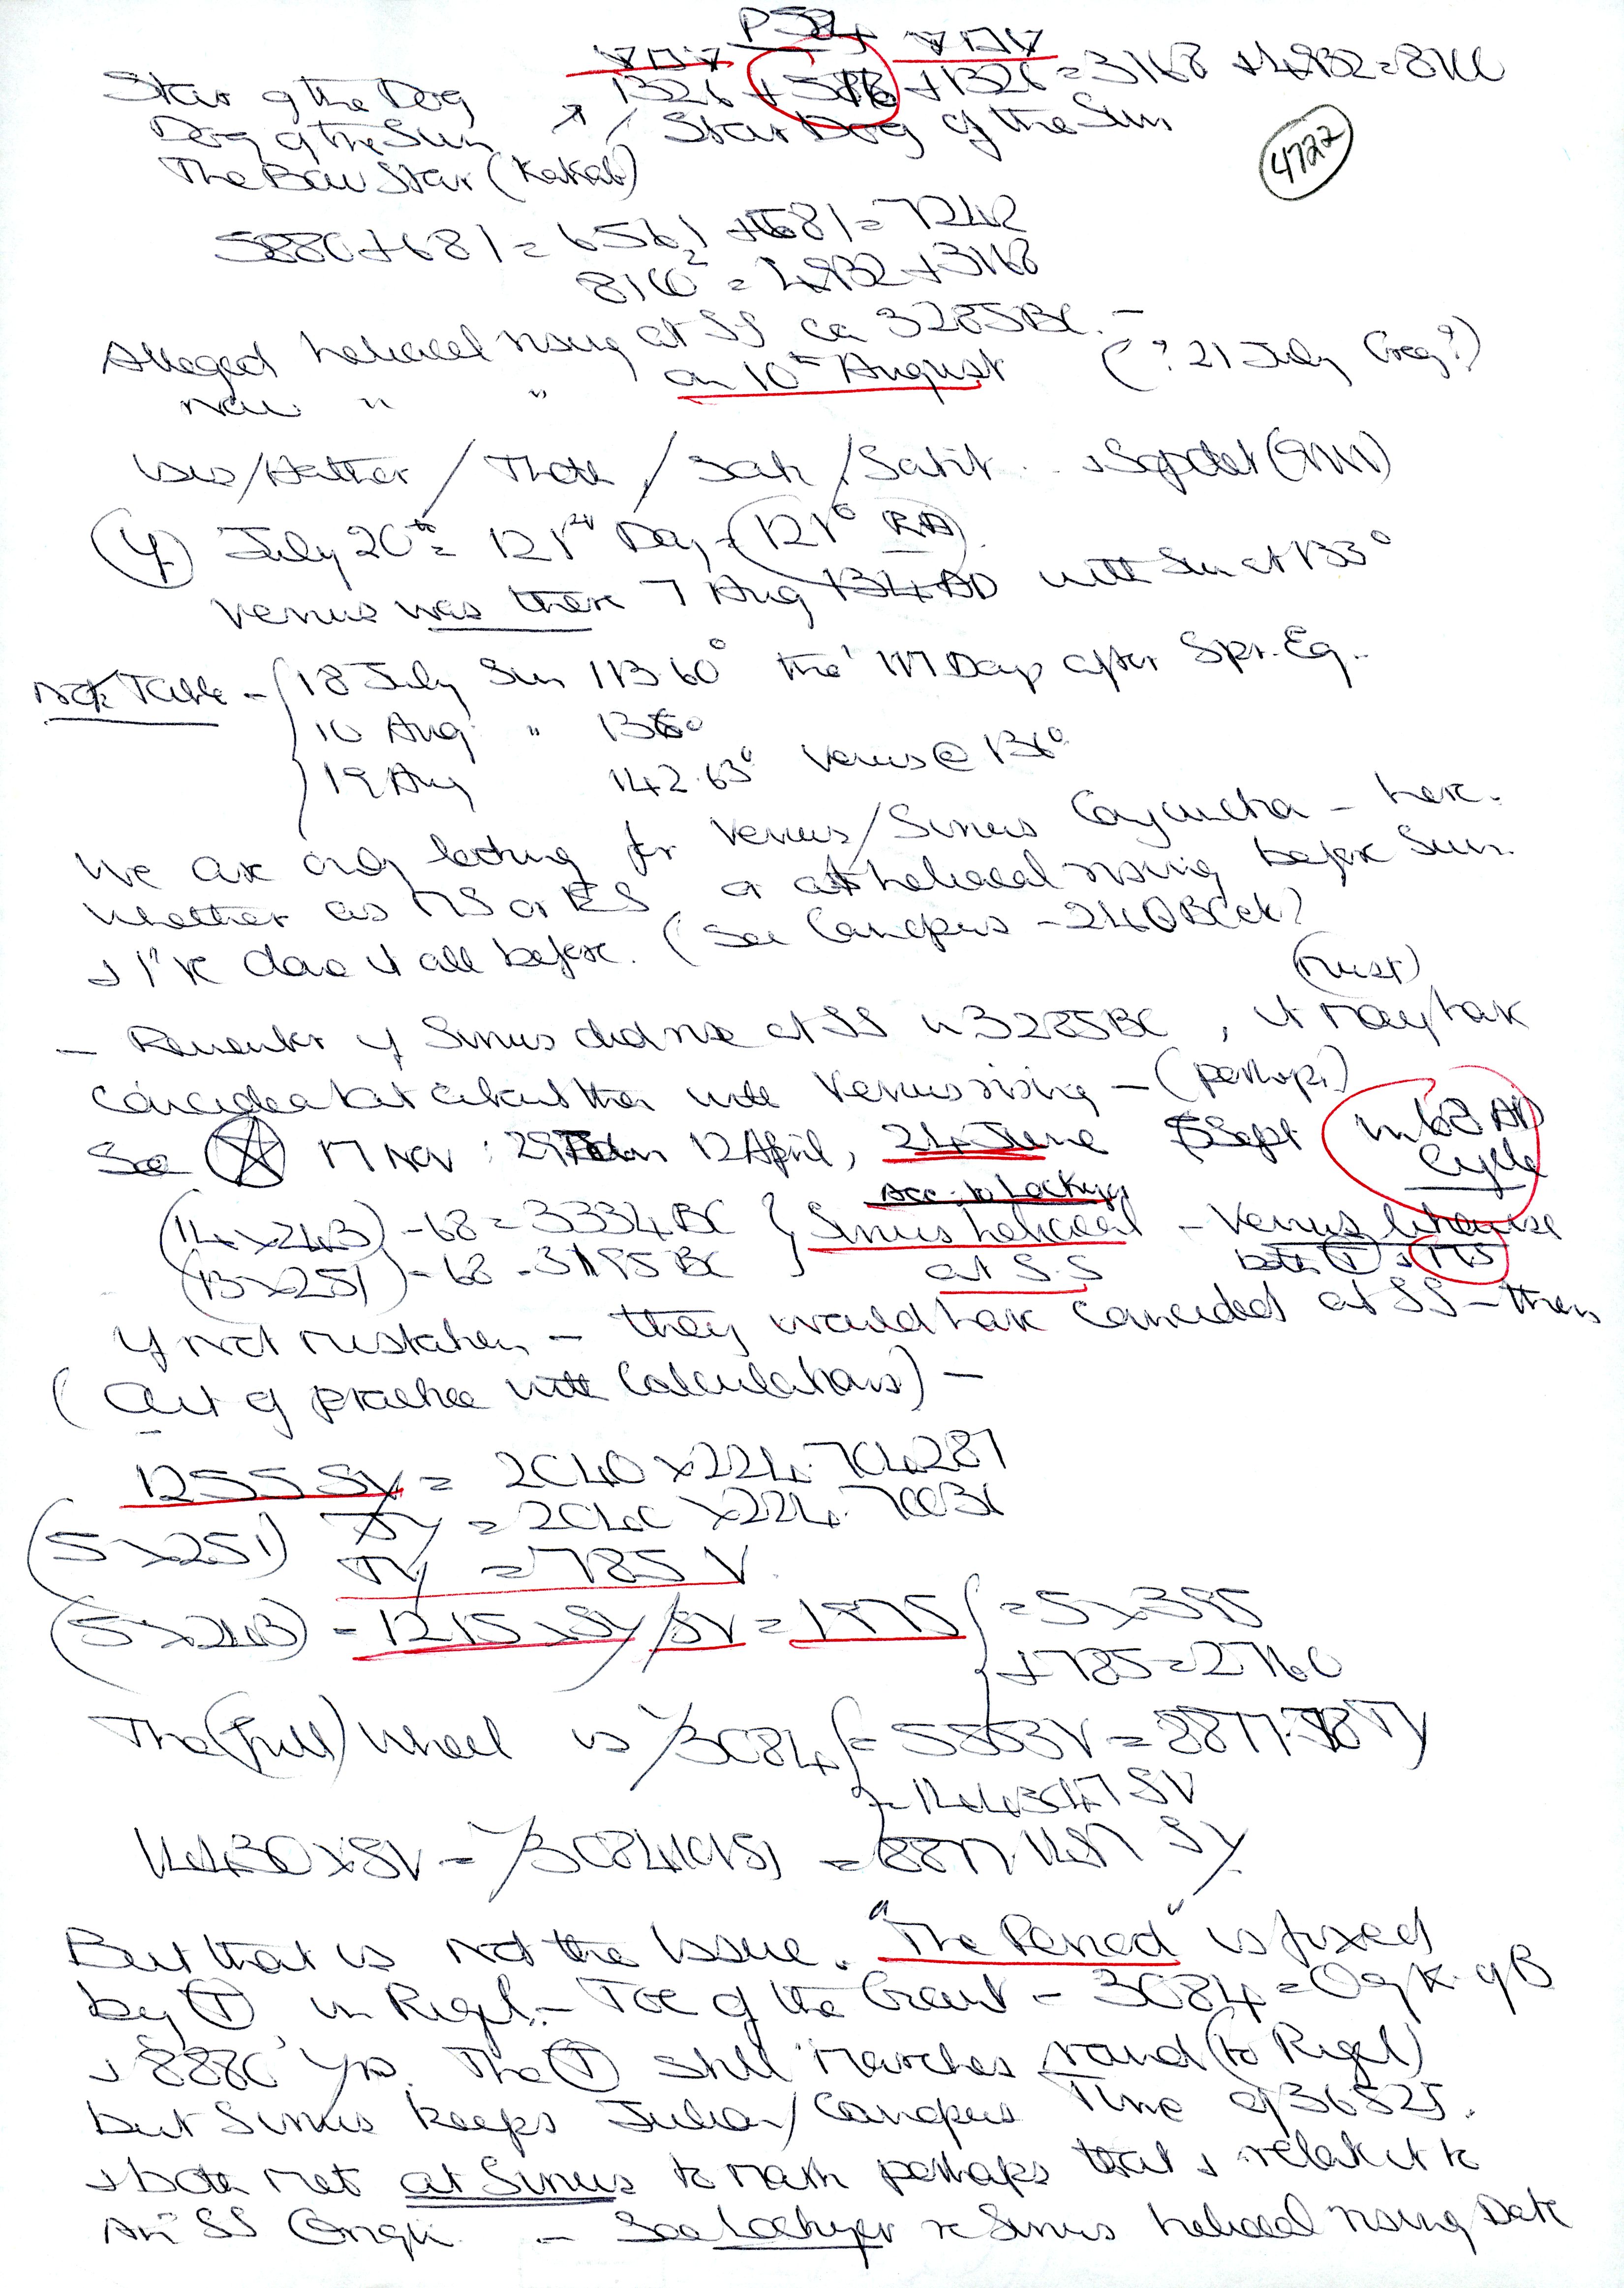 Star of the Dog 1326 + 516 + 1326 = 3168 + 4932 = 8100
Dog of the Sun / Star Dog of the Sun
4722
The Bow Star (Kakab)
5880 + 681 = 6561 + 681 = 7242
8100 = 4932 + 3168
Alleged heliacal rising at SS ca 3285 BC. –
Now " " on 10th August (? 21 July Greg?)
Isis/Hathor / Thoth / Sah / Satit . . & Sopdet
If July 20th = 121st Day = (121° RA)
Venus was there 7 Aug 134 AD with Sun at 133°
Table – 18 July Sun 113.60° the 117 Day after Spr. Eq.
10 Aug " 135°
19 Aug 142.63° Venus @ 136°
We are only looking for Venus/Sirius – here.
Whether as MS or ES or at heliacal rising before Sun.
& I've done it all before. (See Canopus – 240 BC etc)
(must)
– Remember if Sirius did rise at SS in 3285 BC, it may have
coincided about then with Venus rising – (perhaps)
See 17 Nov : 29 Jan 12 April, 24 June 5 Sept in 68 AD Cycle
Acc. to Lockyer
(14 x 243) – 68 = 3334 BC } Sirius heliacal – Venus likewise
(13 x 251) – 68 = 3195 BC at S.S both (T) &
If not mistaken – they would have coincided at SS – then
(Out of practice with Calculations) –
1255 SY = 2040 x 224.704287
(5 x 251) = 2040 x 224.70031
TY = 785 V
(5 x 243) – 1215 x SY/SV = 1975 { = 5 x 395
+ 785 = 2760
The (full) Wheel is Y/3084 { = 5553V = 8877.
= 14430.47 SV
14430 x SV = = 8877. SY
But that is not the Issue. "The Period" is fixed
by (T) in Rigel. – Toe of the Giant – 3084 = Og K. of B
& 8880 Yrs. The (T) still marches round (to Rigel)
but Sirius keeps Julian/Canopus Time of 365.25.
& both met at Sirius to mark perhaps that & relate it to
An SS Origin. – See Lockyer re Sirius heliacal rising Date